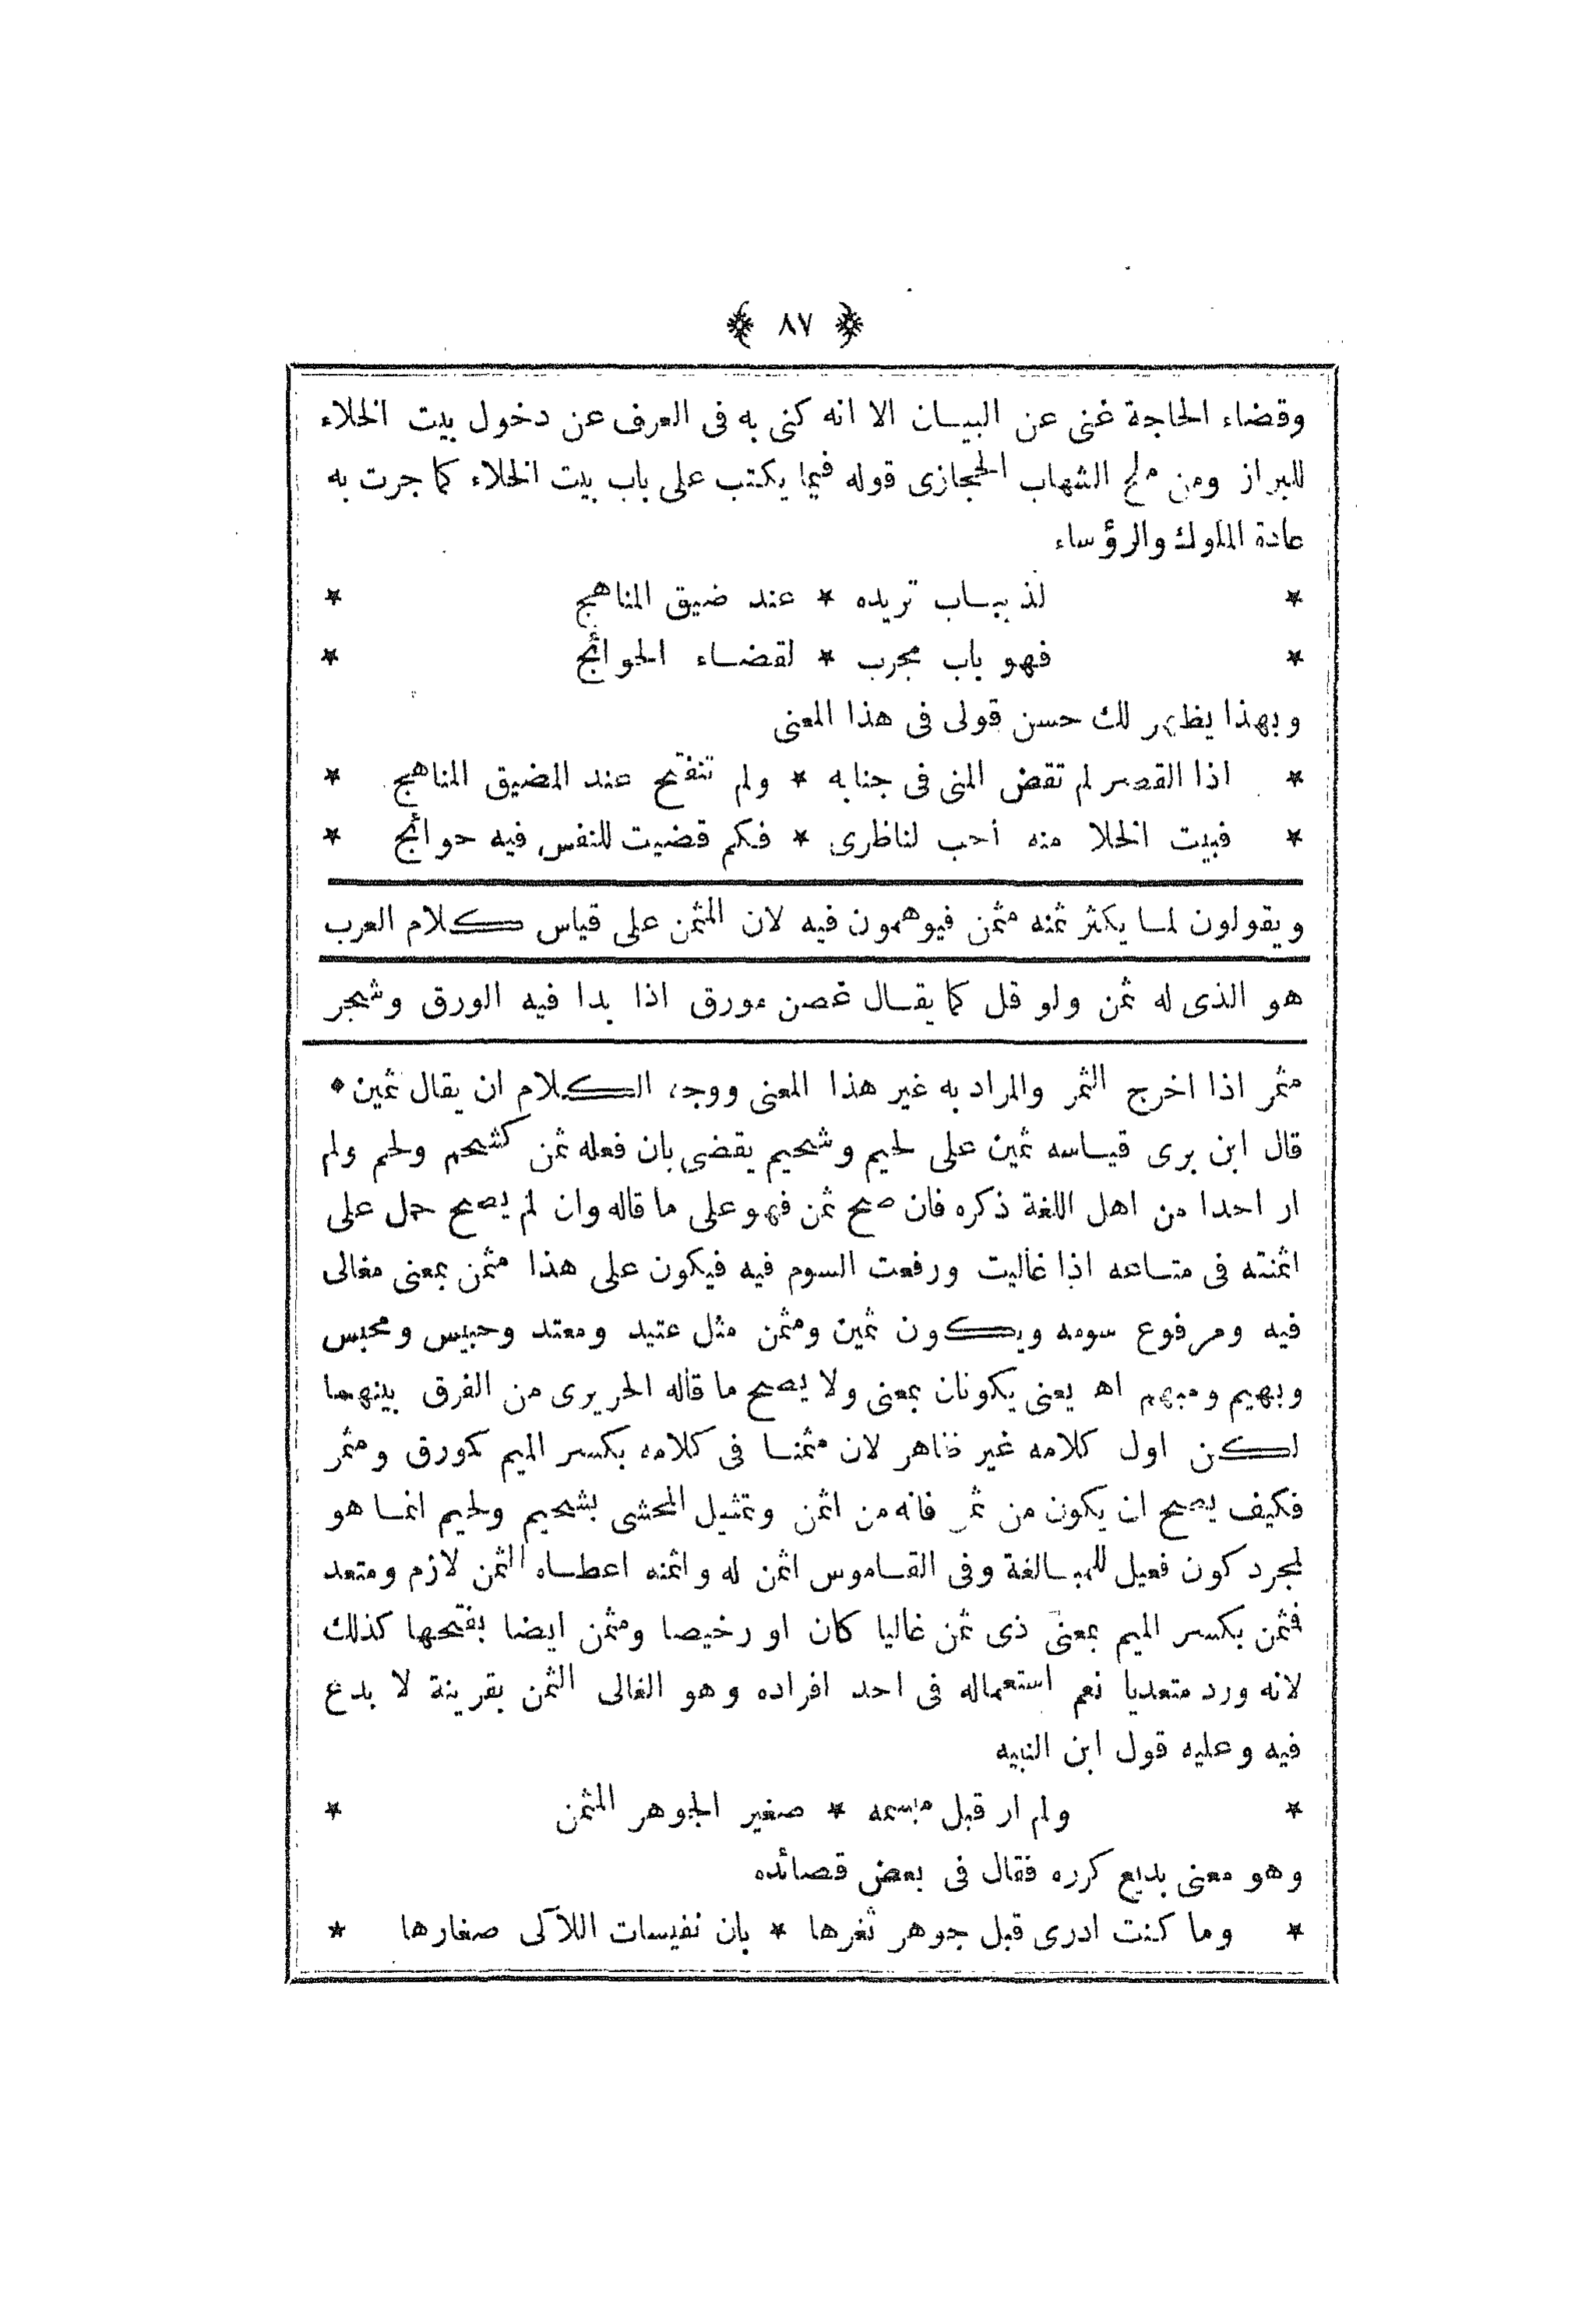 ﴿ ٨٧ ﴾
وقضاء الحاجة غنى عن البيان الا انه كنى به فى العرف عن دخول بيت الخلاء
للبراز ومن ملح الشهاب الحجازى قوله فيما يكتب على باب بيت الخلاء كما جرت به
عادة الملوك والرؤساء
* لذ بباب تريده * عند ضيق المناهج *
* فهو باب مجرب * لقضاء الحوائج *
وبهذا يظهر لك حسن قولى فى هذا المعنى
* اذا القصر لم تقض المنى فى جنابه * ولم تنفتح عند المضيق المناهج *
* فبيت الخلا منه أحب لناظرى * فكم قضيت للنفس فيه حوائج *
ويقولون لما يكثر ثمنه مثمن فيوهمون فيه لان المثمن على قياس كلام العرب
هو الذى له ثمن ولو قل كما يقال غصن مورق اذا بدا فيه الورق وشجر
مثمر اذا اخرج الثمر والمراد به غير هذا المعنى ووجه الكلام ان يقال ثمين *
قال ابن برى قياسه ثمين على لحيم وشحيم يقضى بان فعله ثمن كشحم ولحم ولم
ار احدا من اهل اللغة ذكره فان صح ثمن فهو على ما قاله وان لم يصح حمل على
اثمنته فى متاعه اذا غاليت ورفعت السوم فيه فيكون على هذا مثمن بمعنى مغالى
فيه ومرفوع سومه ويكون ثمين ومثمن مثل عتيد ومعتد وحبيس ومحبس
وبهيم ومبهم اه يعنى يكونان بمعنى ولا يصح ما قاله الحريرى من الفرق بينهما
لكن اول كلامه غير ظاهر لان مثمنا فى كلامه بكسر الميم كمورق ومثمر
فكيف يصح ان يكون من ثمن فانه من اثمن وتمثيل المحشى بشحيم ولحيم انما هو
لمجرد كون فعيل للمبالغة وفى القاموس اثمن له واثمنه اعطاه الثمن لازم ومتعد
فمثمن بكسر الميم بمعنى ذى ثمن غاليا كان او رخيصا ومثمن ايضا بفتحها كذلك
لانه ورد متعديا نعم استعماله فى احد افراده وهو الغالى الثمن بقرينة لا بدع
فيه وعليه قول ابن النبيه
* ولم ار قبل مبسمه * صغير الجوهر المثمن *
وهو معنى بديع كرره فقال فى بعض قصائده
* وما كنت ادرى قبل جوهر ثغرها * بان نفيسات اللآلى صغارها *